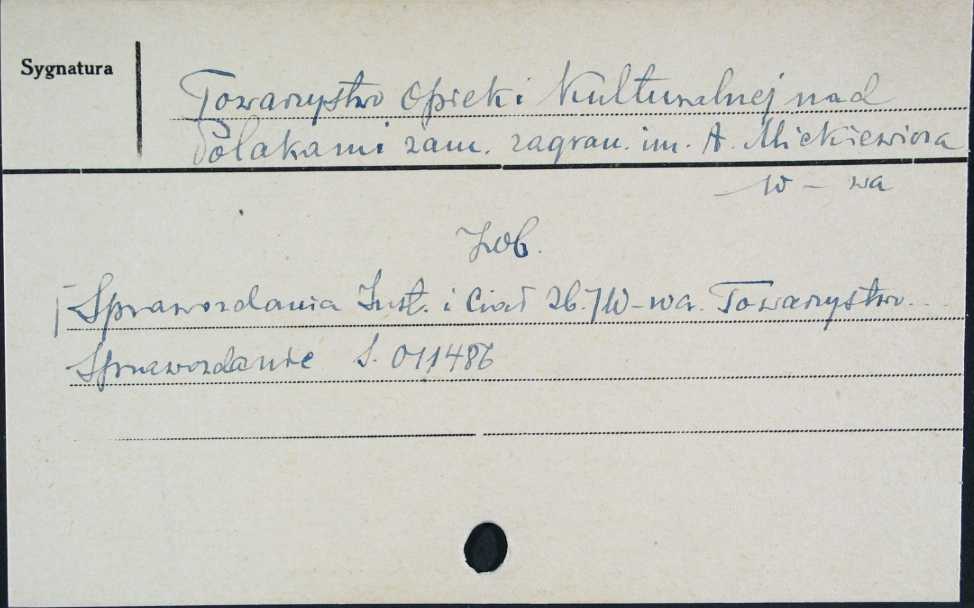 Sygnatura
Towarzystwo Opieki Kulturalnej nad
Polakami zam. zagran. im. A. Mickiewicza
W-wa
Zob.
[Sprawozdania Inst. i Ciał Zb.] W-wa. Towarzystwo...
Sprawozdanie S. 011486